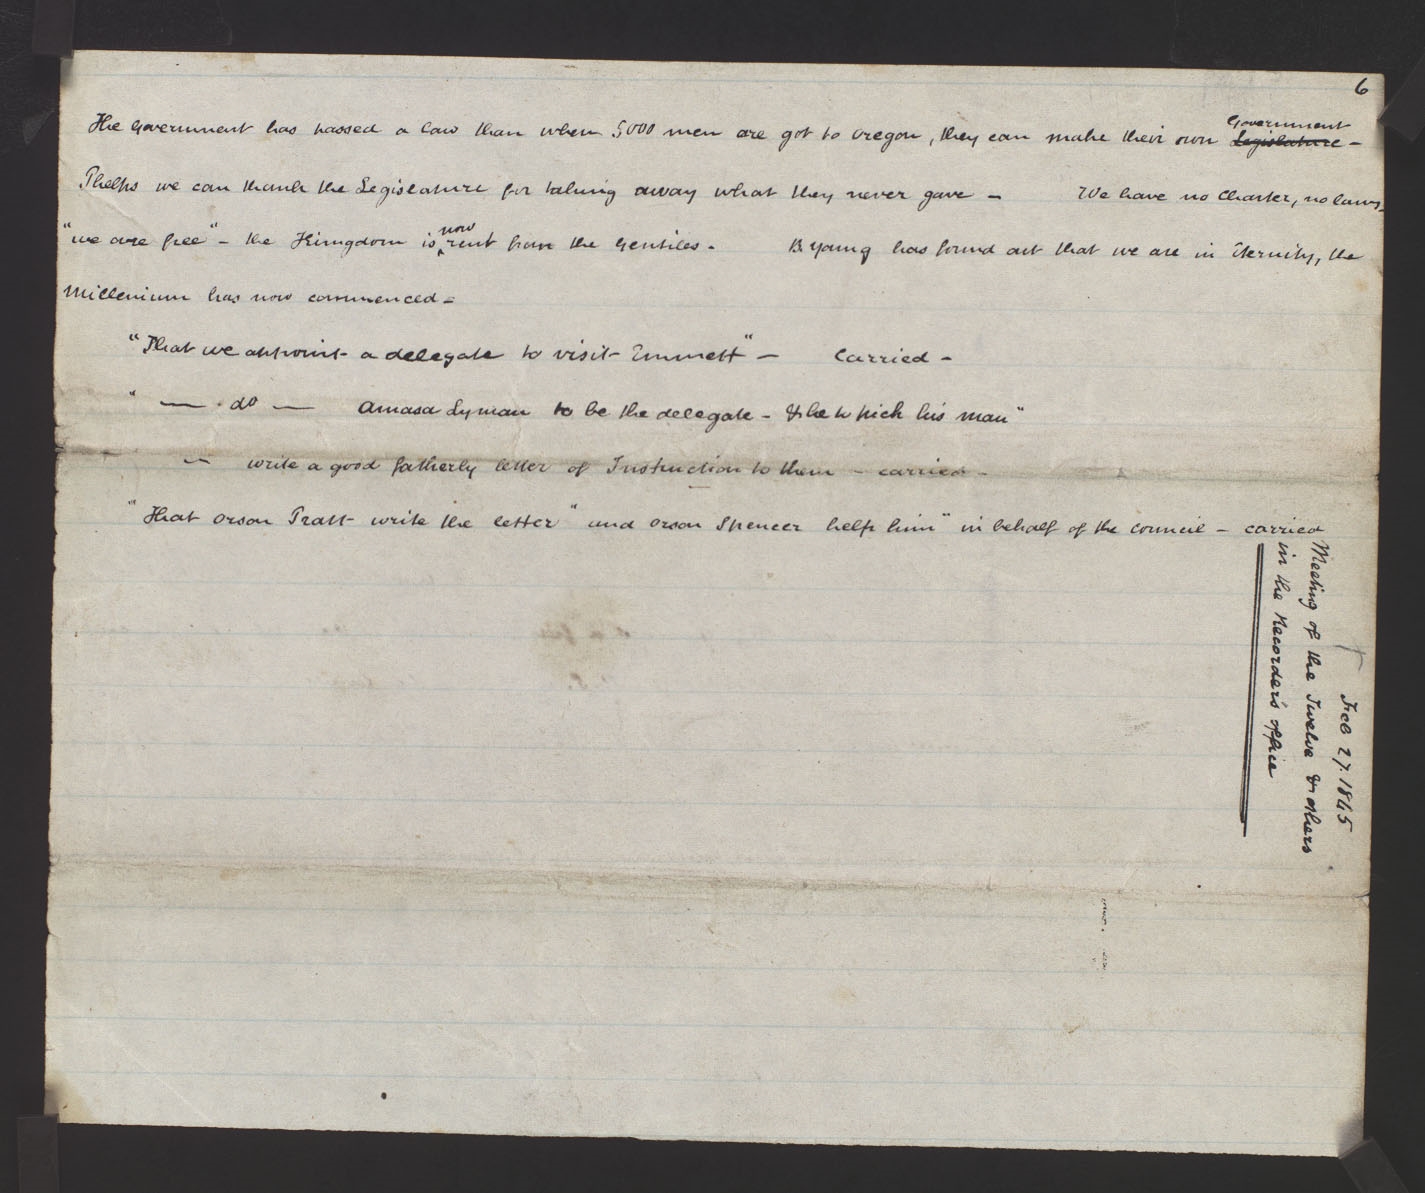 6
The Government has passed a law than when 5000 men are got to Oregon, they can make their own Government Legislature -
Phelps we can thank the Legislature for taking away what they never gave - We have no Charter, no laws -
"we are free" - the Kingdom is now rent from the Gentiles - B. Young has found out that we are in Eternity, the
Millenium has now commenced -
"That we appoint a delegate to visit Emmett" - Carried -
" — do — Amasa Lyman to be the delegate - & he to pick his man"
— write a good fatherly letter of Instruction to them - carried -
"That Orson Pratt write the letter" and Orson Spencer help him" in behalf of the council - carried
Feb 27. 1845
Meeting of the Twelve & others
in the Recorder's office